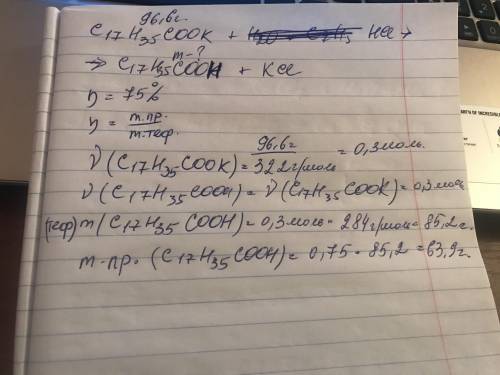 96,6г
C17H35COOK + HCl →
m-?
→ C17H35COOH + KCl
η = 75%
η = m.пр. / m.теор.
ν (C17H35COOK) = 96,6г / 322г/моль = 0,3 моль.
ν (C17H35COOH) = ν (C17H35COOK) = 0,3 моль
(теор) m (C17H35COOH) = 0,3 моль · 284 г/моль = 85,2 г.
m.пр. (C17H35COOH) = 0,75 · 85,2 = 63,9г.